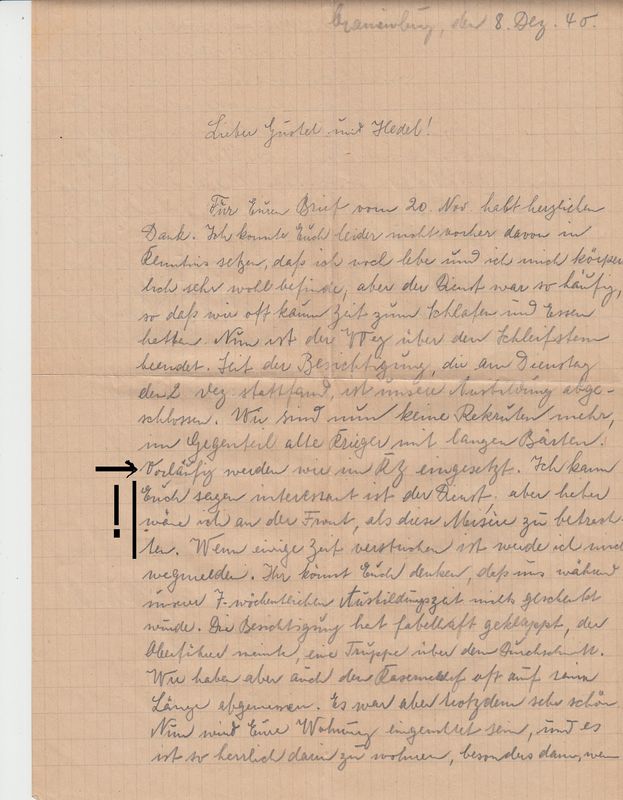 Oranienburg, den 8. Dez. 40.
Lieber Gustel und Hedel!
Für Euren Brief vom 20. Nov. habt herzlichen
Dank. Ich konnte Euch leider nicht vorher davon in
Kenntnis setzen, daß ich noch lebe und ich mich körper
lich sehr wohl befinde, aber der Dienst war so häufig,
so daß wir oft kaum Zeit zum Schlafen und Essen
hatten. Nun ist der Weg über den Schleifstein
beendet. Seit der Besichtigung, die am Dienstag
den 2. Dez. stattfand, ist unsere Ausbildung abge-
schlossen. Wir sind nun keine Rekruten mehr,
im Gegenteil alte Krieger mit langen Bärten.
Vorläufig werden wir im KZ eingesetzt. Ich kann
Euch sagen interessant ist der Dienst, aber lieber
wäre ich an der Front, als diese Misère zu betrach-
ten. Wenn einige Zeit verstrichen ist werde ich mich
wegmelden. Ihr könnt Euch denken, daß uns während
unserer 7-wöchentlichen Ausbildungszeit nichts geschenkt
wurde. Die Besichtigung hat fabelhaft geklappt, der
Oberführer meinte, eine Truppe über dem Durchschnitt.
Wir haben aber auch den Kasernenhof oft auf seine
Länge abgemessen. Es war aber trotzdem sehr schön.
Nun wird Eure Wohnung eingerichtet sein, und es
ist so herrlich darin zu wohnen, besonders dann, wenn